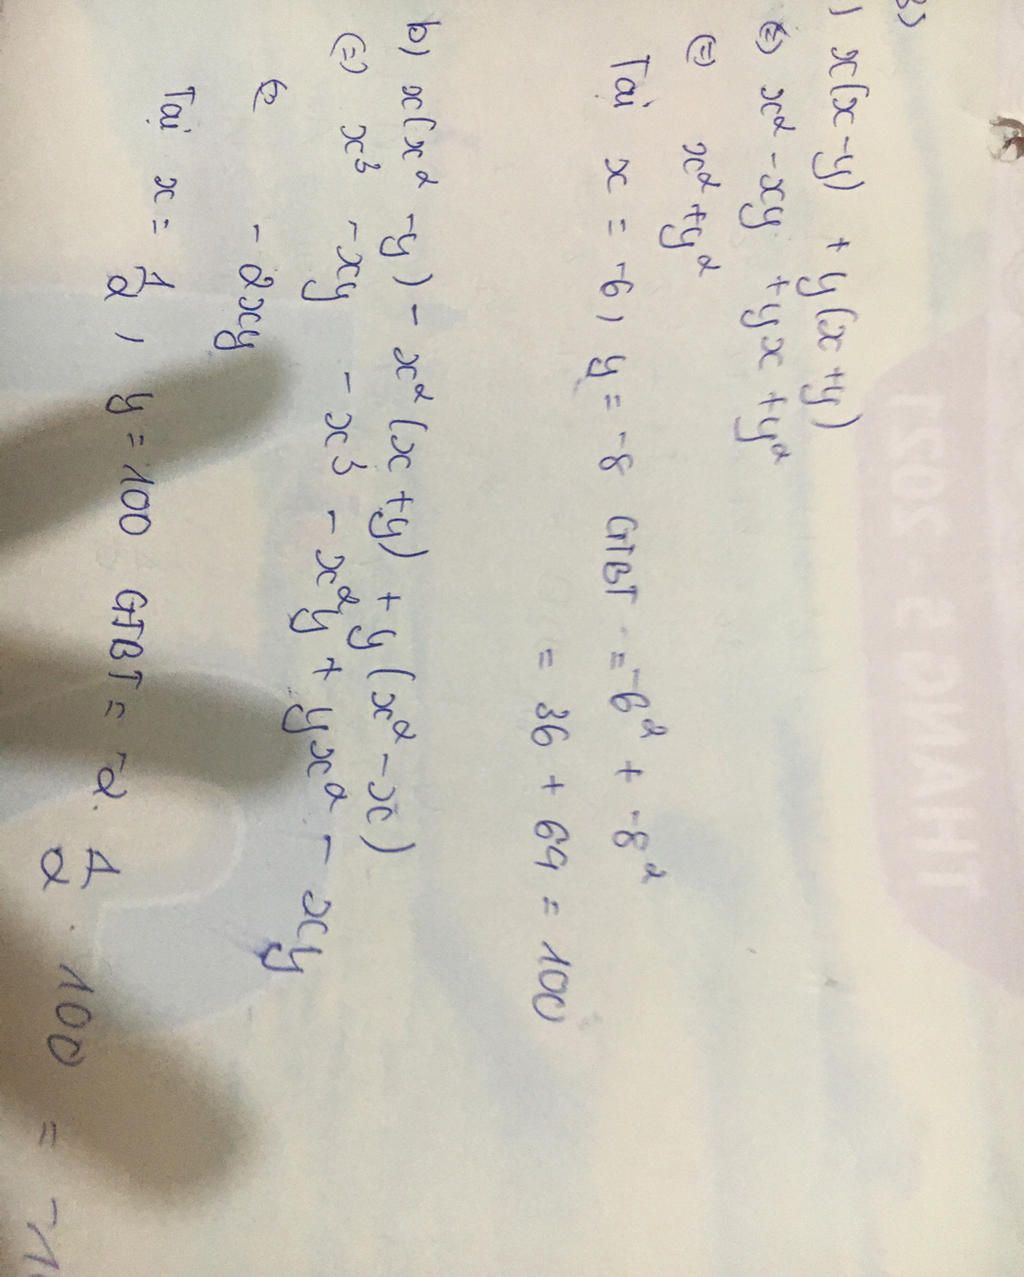 3)
) x(x-y) + y(x+y)
(=) x² - xy + yx + y²
(=) x² + y²
Tại x = -6, y = -8 GTBT = -6² + -8²
= 36 + 64 = 100
b) x(x² - y) - x²(x + y) + y(x² - x)
(=) x³ - xy - x³ - x²y + yx² - xy
(=) - 2xy
Tại x = 1/2, y = 100 GTBT = -2. 1/2 . 100 = -1
THÁNG 5 - 2021